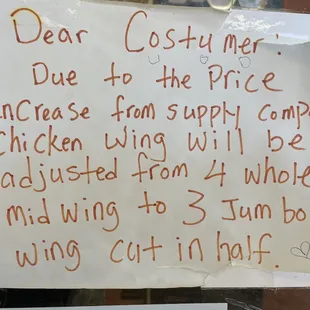 Dear Costumer:
Due to the Price
increase from supply comp
Chicken wing will be
adjusted from 4 whole
mid wing to 3 Jumbo
wing cut in half.